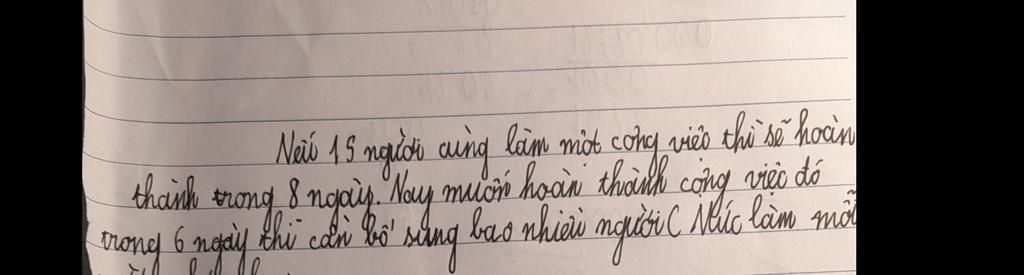 Nếu 15 người cùng làm một công việc thì sẽ hoàn
thành trong 8 ngày. Nay muốn hoàn thành công việc đó
trong 6 ngày thì cần bổ sung bao nhiêu người ( Mức làm mỗi